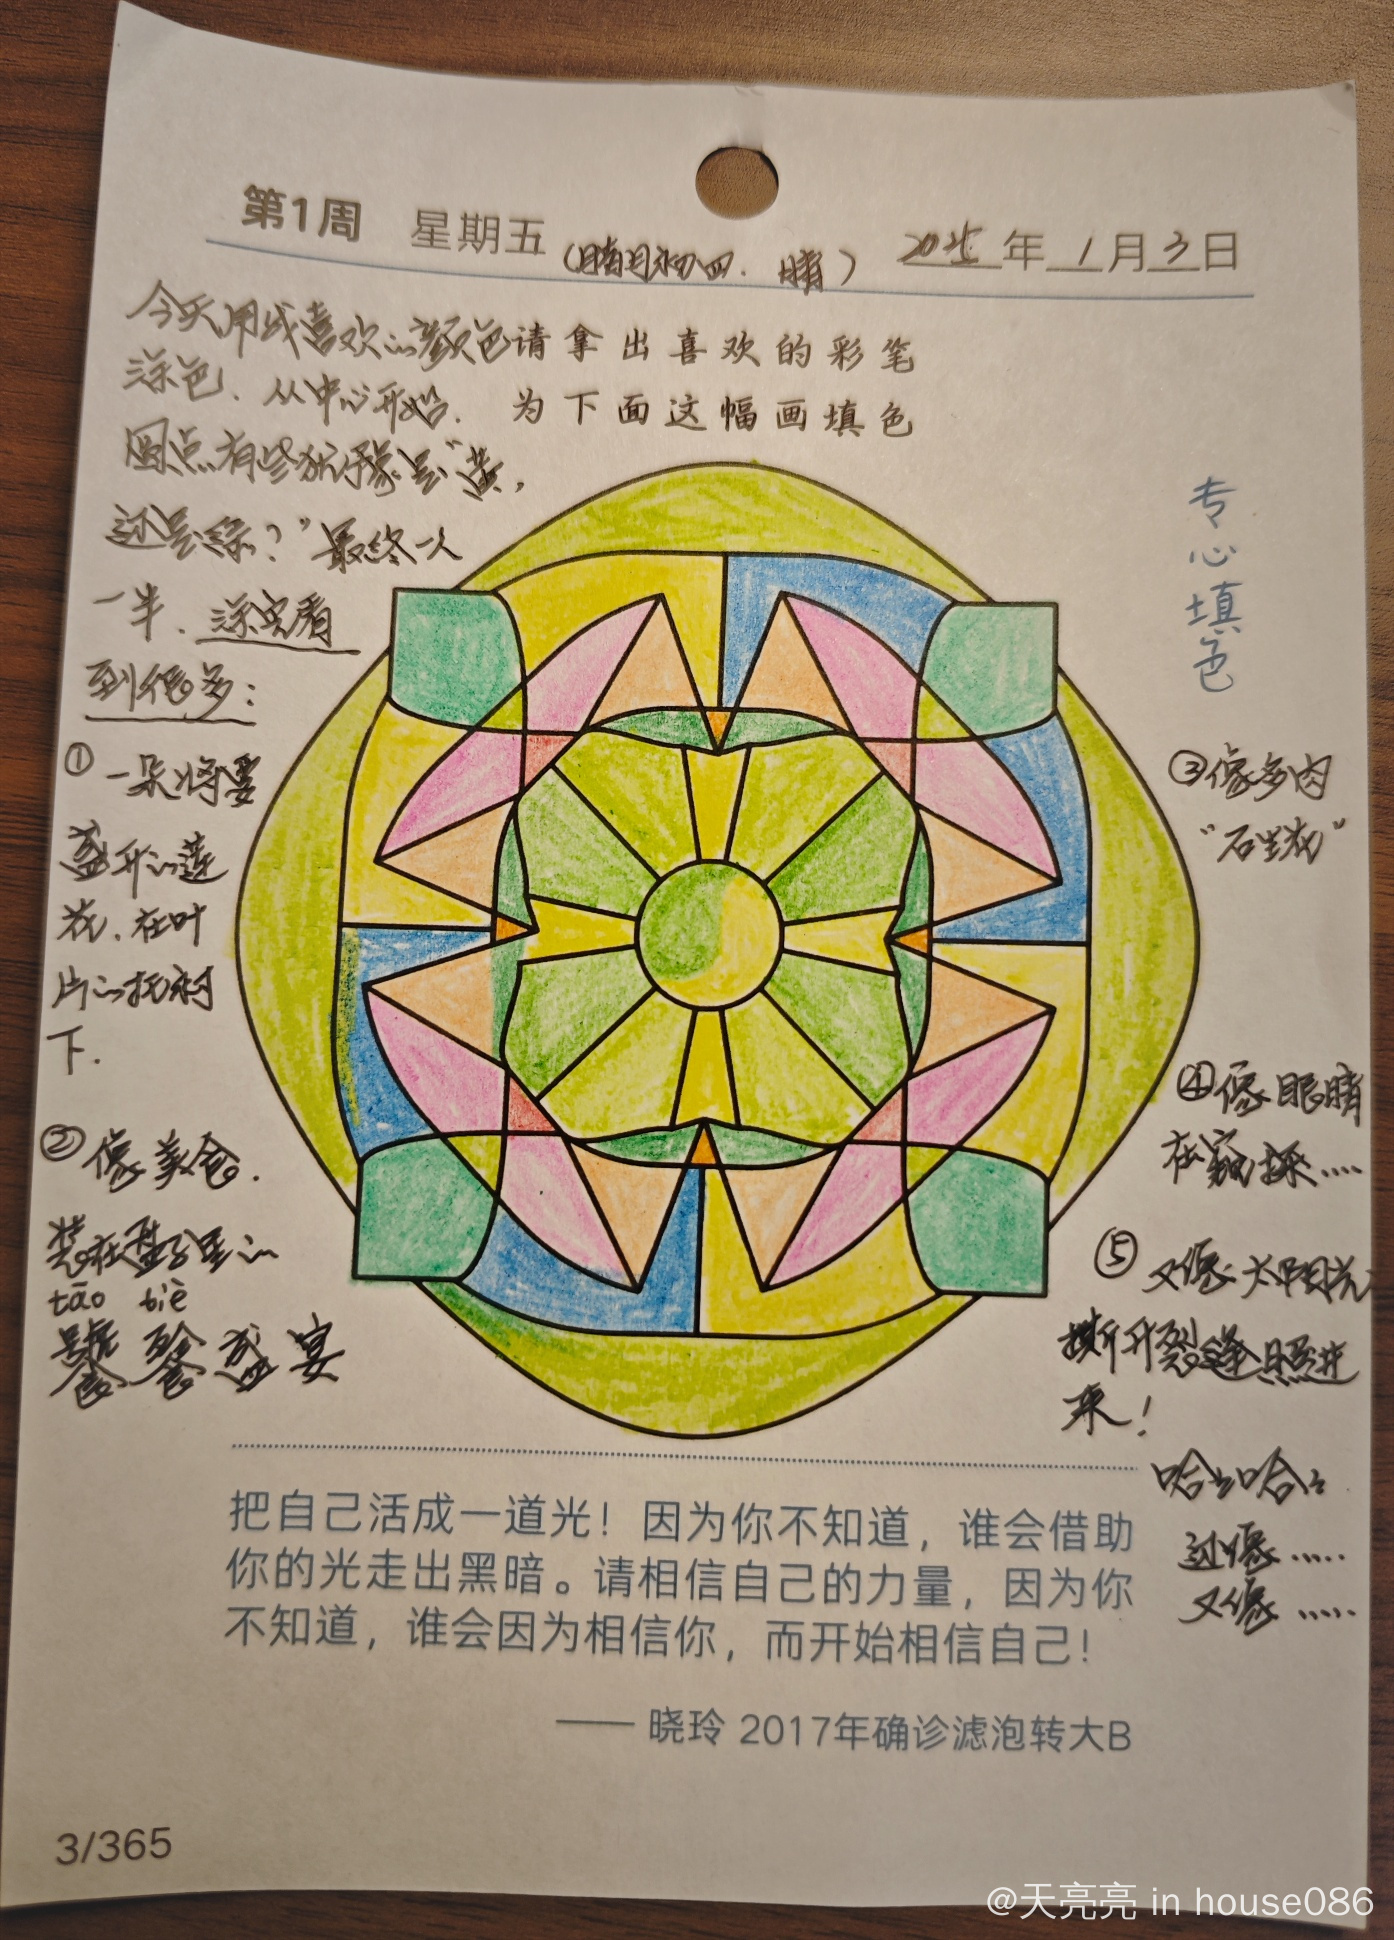 第1周 星期五 (腊月初四.晴) 2025年1月3日
今天用我喜欢的颜色
涂色.从中心开始.
圆点有些犹豫是"黄,
还是绿?"最终一人
一半.涂完看
到很多:
请拿出喜欢的彩笔
为下面这幅画填色
专心填色
①一朵将要
盛开的莲
花.在叶
片的托衬
下.
②像美食.
装在盘子里的
tāo tiè
饕餮盛宴
③像多肉
"石生花"
④像眼睛
在窥探....
⑤又像太阳光
撕开裂缝照进
来!
哈哈哈哈
还像.....
又像.....
把自己活成一道光！因为你不知道，谁会借助
你的光走出黑暗。请相信自己的力量，因为你
不知道，谁会因为相信你，而开始相信自己！
—— 晓玲 2017年确诊滤泡转大B
3/365
@天亮亮 in house086